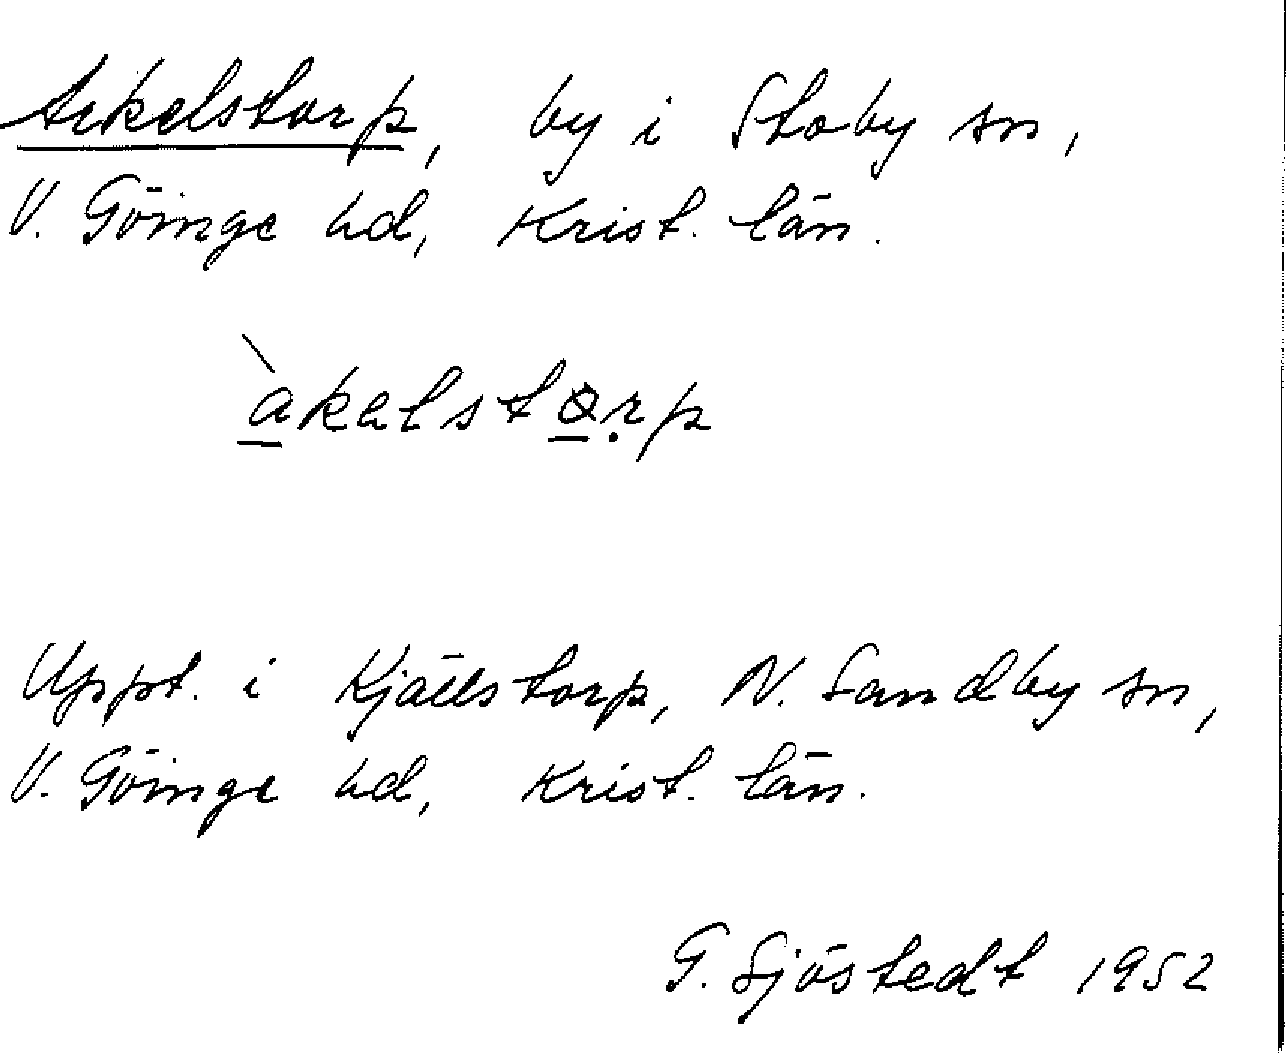 Arkelstorp, by i Stoby sn,
V. Göinge hd, Krist. län.
àkəlstɔrp
Uppt. i Kjällstorp, N. Sandby sn,
V. Göinge hd, Krist. län.
G. Sjöstedt 1952